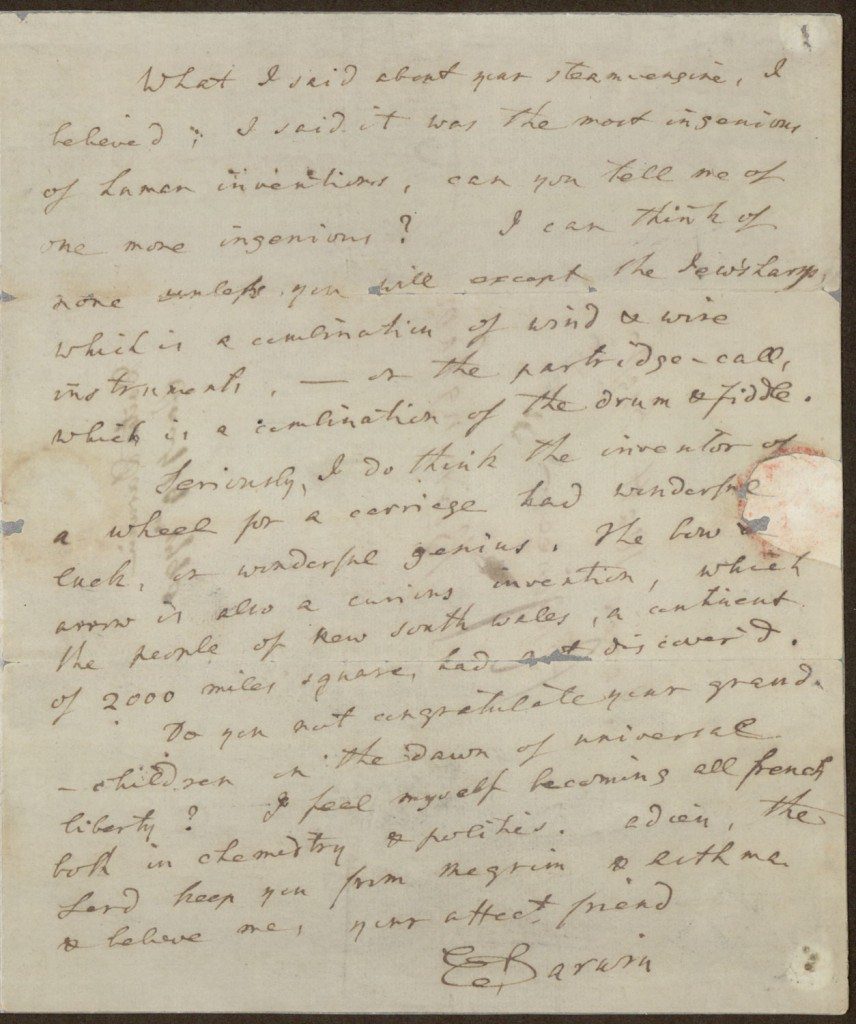 What I said about your steam-engine, I
believe'd; I said it was the most ingenious
of human inventions, can you tell me of
one more ingenious? I can think of
none unless you will except the Jew'sharp,
which is a combination of wind & wire
instruments, — or the partridge-call,
which is a combination of the drum & fiddle.
Seriously, I do think the inventor of
a wheel for a carriage had wonderful
luck, or wonderful genius. The bow &
arrow is also a curious invention, which
the people of new south wales, a continent
of 2000 miles square, had not discover'd.
Do you not congratulate your grand-
-children on the dawn of universal
liberty? I feel myself becoming all french
both in chemistry & politics. adieu, the
Lord keep you from megrim & asthma
& believe me, your affect. friend
E Darwin